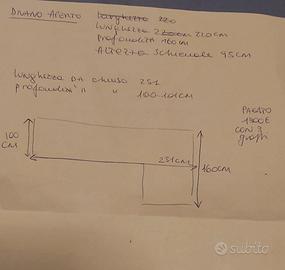 DIVANO APERTO larghezza 220
lunghezza 220cm
profondità 160cm
Altezza schienale 95cm
lunghezza DA chiuso 251
profondità " " 100-101cm
PAGATO
1900€
CON 3
100
CM
251CM
160CM
subito